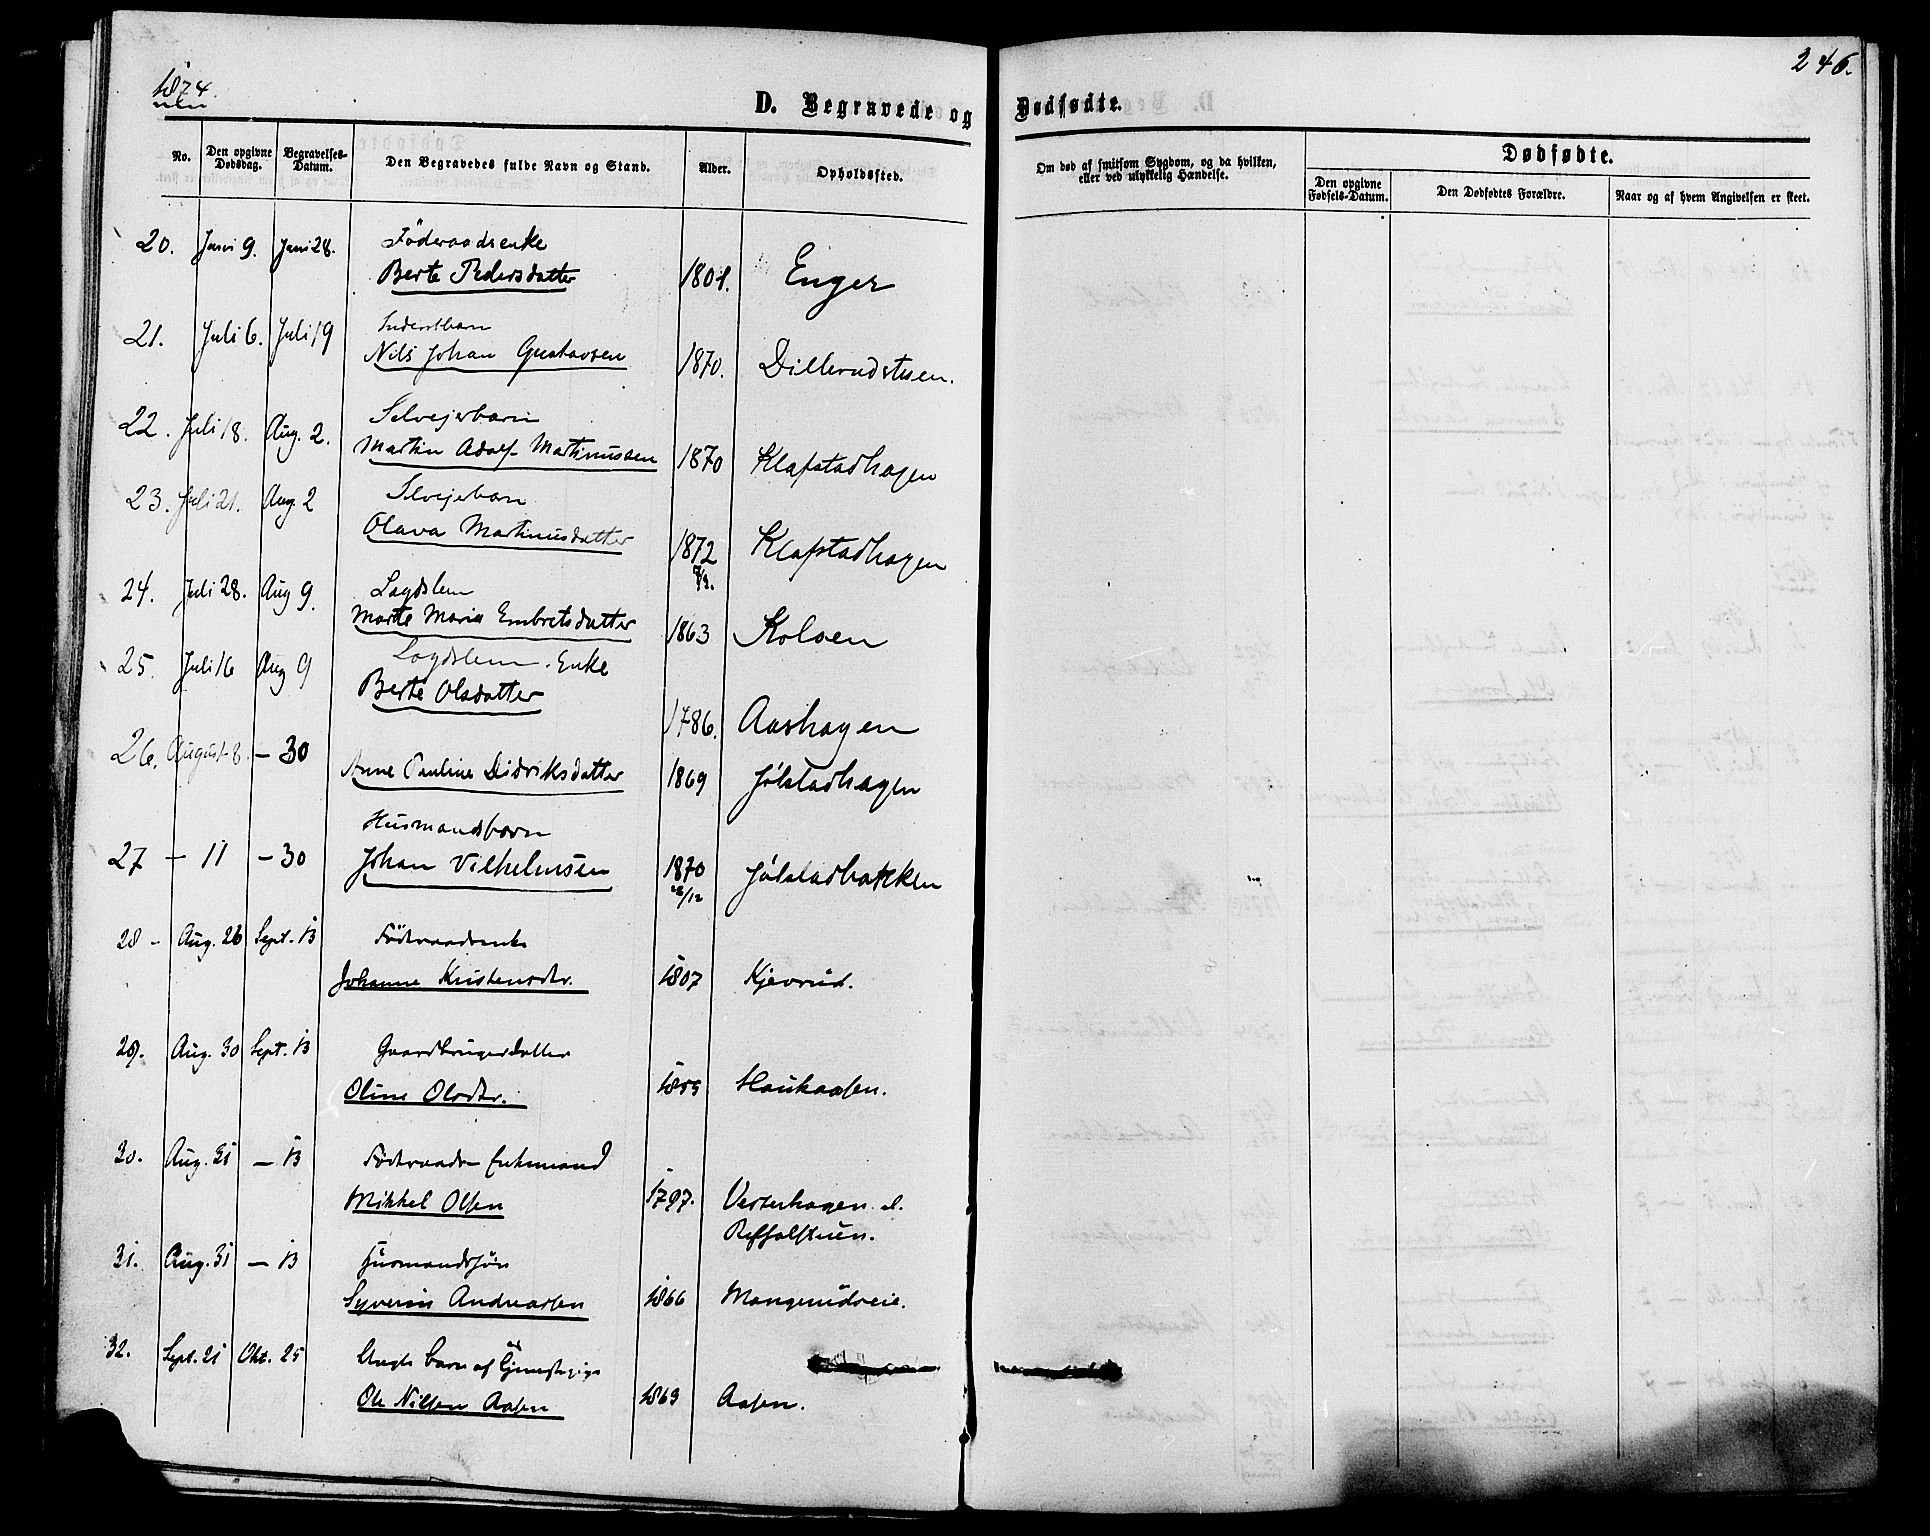 1874.
246.
D. Begravede og Dødfødte.
No.
Den opgivne Dødsdag.
Begravelses-Datum.
Den Begravedes fulde Navn og Stand.
Alder.
Opholdssted.
Om død af smitsom Sygdom, og da hvilken, eller ved ulykkelig Hændelse.
Dødfødte.
Den opgivne Fødsels-Datum.
Den Dødfødtes Forældre.
Naar og af hvem Angivelsen er skeet.
20. Juni 9. Juni 28. Föderaadsenke
Berte Pedersdatter 1801. Enger
21. Juli 6. Juli 19
Nils Johan Gustavsen 1870. Dillerudstuen.
22. Juli 18. Aug. 2. Selvejerbarn
Martin Adolf Martinussen 1870 Klapstadhagen
23. Juli 21. Aug. 2 Selvejerbarn
Olava Martinusdatter 1872 Klapstadhagen
24. Juli 28. Aug 9. Lægdslem
Marte Marie Embretsdatter 1863 Kolsen
25. Juli 16 Aug 9 Lægdslem. Enke
Berte Olsdatter 1786. Aashagen
26. August 8. — 30
Anne Pauline Didriksdatter 1869 Jølstadhagen
27 — 11 — 30 Husmandsbarn
Johan Vilhelmsen 1870 Jølstadbakken
28 - Aug. 26 Sept. 13 Föderaadsenke
Johanne Kristensdtr. 1807 Kjevrud.
29. Aug. 30 Sept. 13 Gaardbrugerdatter
Oline Olsdtr. Haukaasen.
30. Aug. 31 — 13 Föderaads Enkemand
Mikkel Olsen 1797. Vesterhagen u.
31. Aug. 31 — 13 Husmandssøn
Syverin Andreassen 1866 Mangerudseie.
32. Sept. 21 Okt. 25 Uægte Barn af
Ole Nilsen Aasen 1869 Aasen.